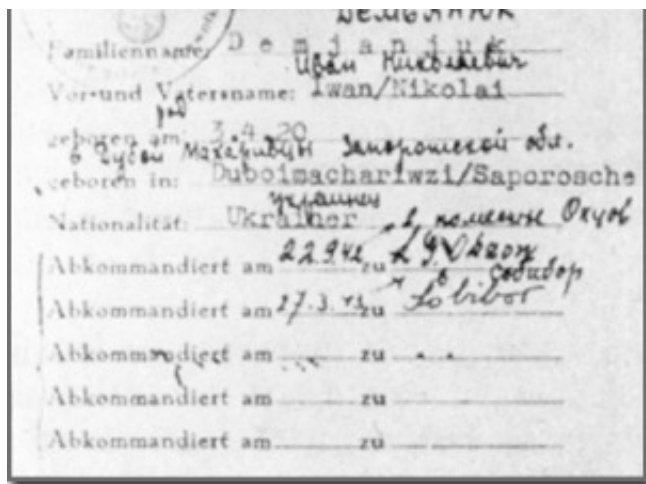 Демьянюк
Familienname: Demjanjuk
Иван Николаевич
Vor-und Vatersname: Iwan/Nikolai
род
geboren am: 3.4.20
в Дубой Махаривцы Запорожской обл.
geboren in: Duboimachariwzi/Saporosche
украинец
Nationalität: Ukrainer в поместье Окцов
Abkommandiert am 22.9.42 zu L.G. Okzow
в Собибор
Abkommandiert am 27.3.43 zu Sobibor
Abkommandiert am zu
Abkommandiert am zu
Abkommandiert am zu